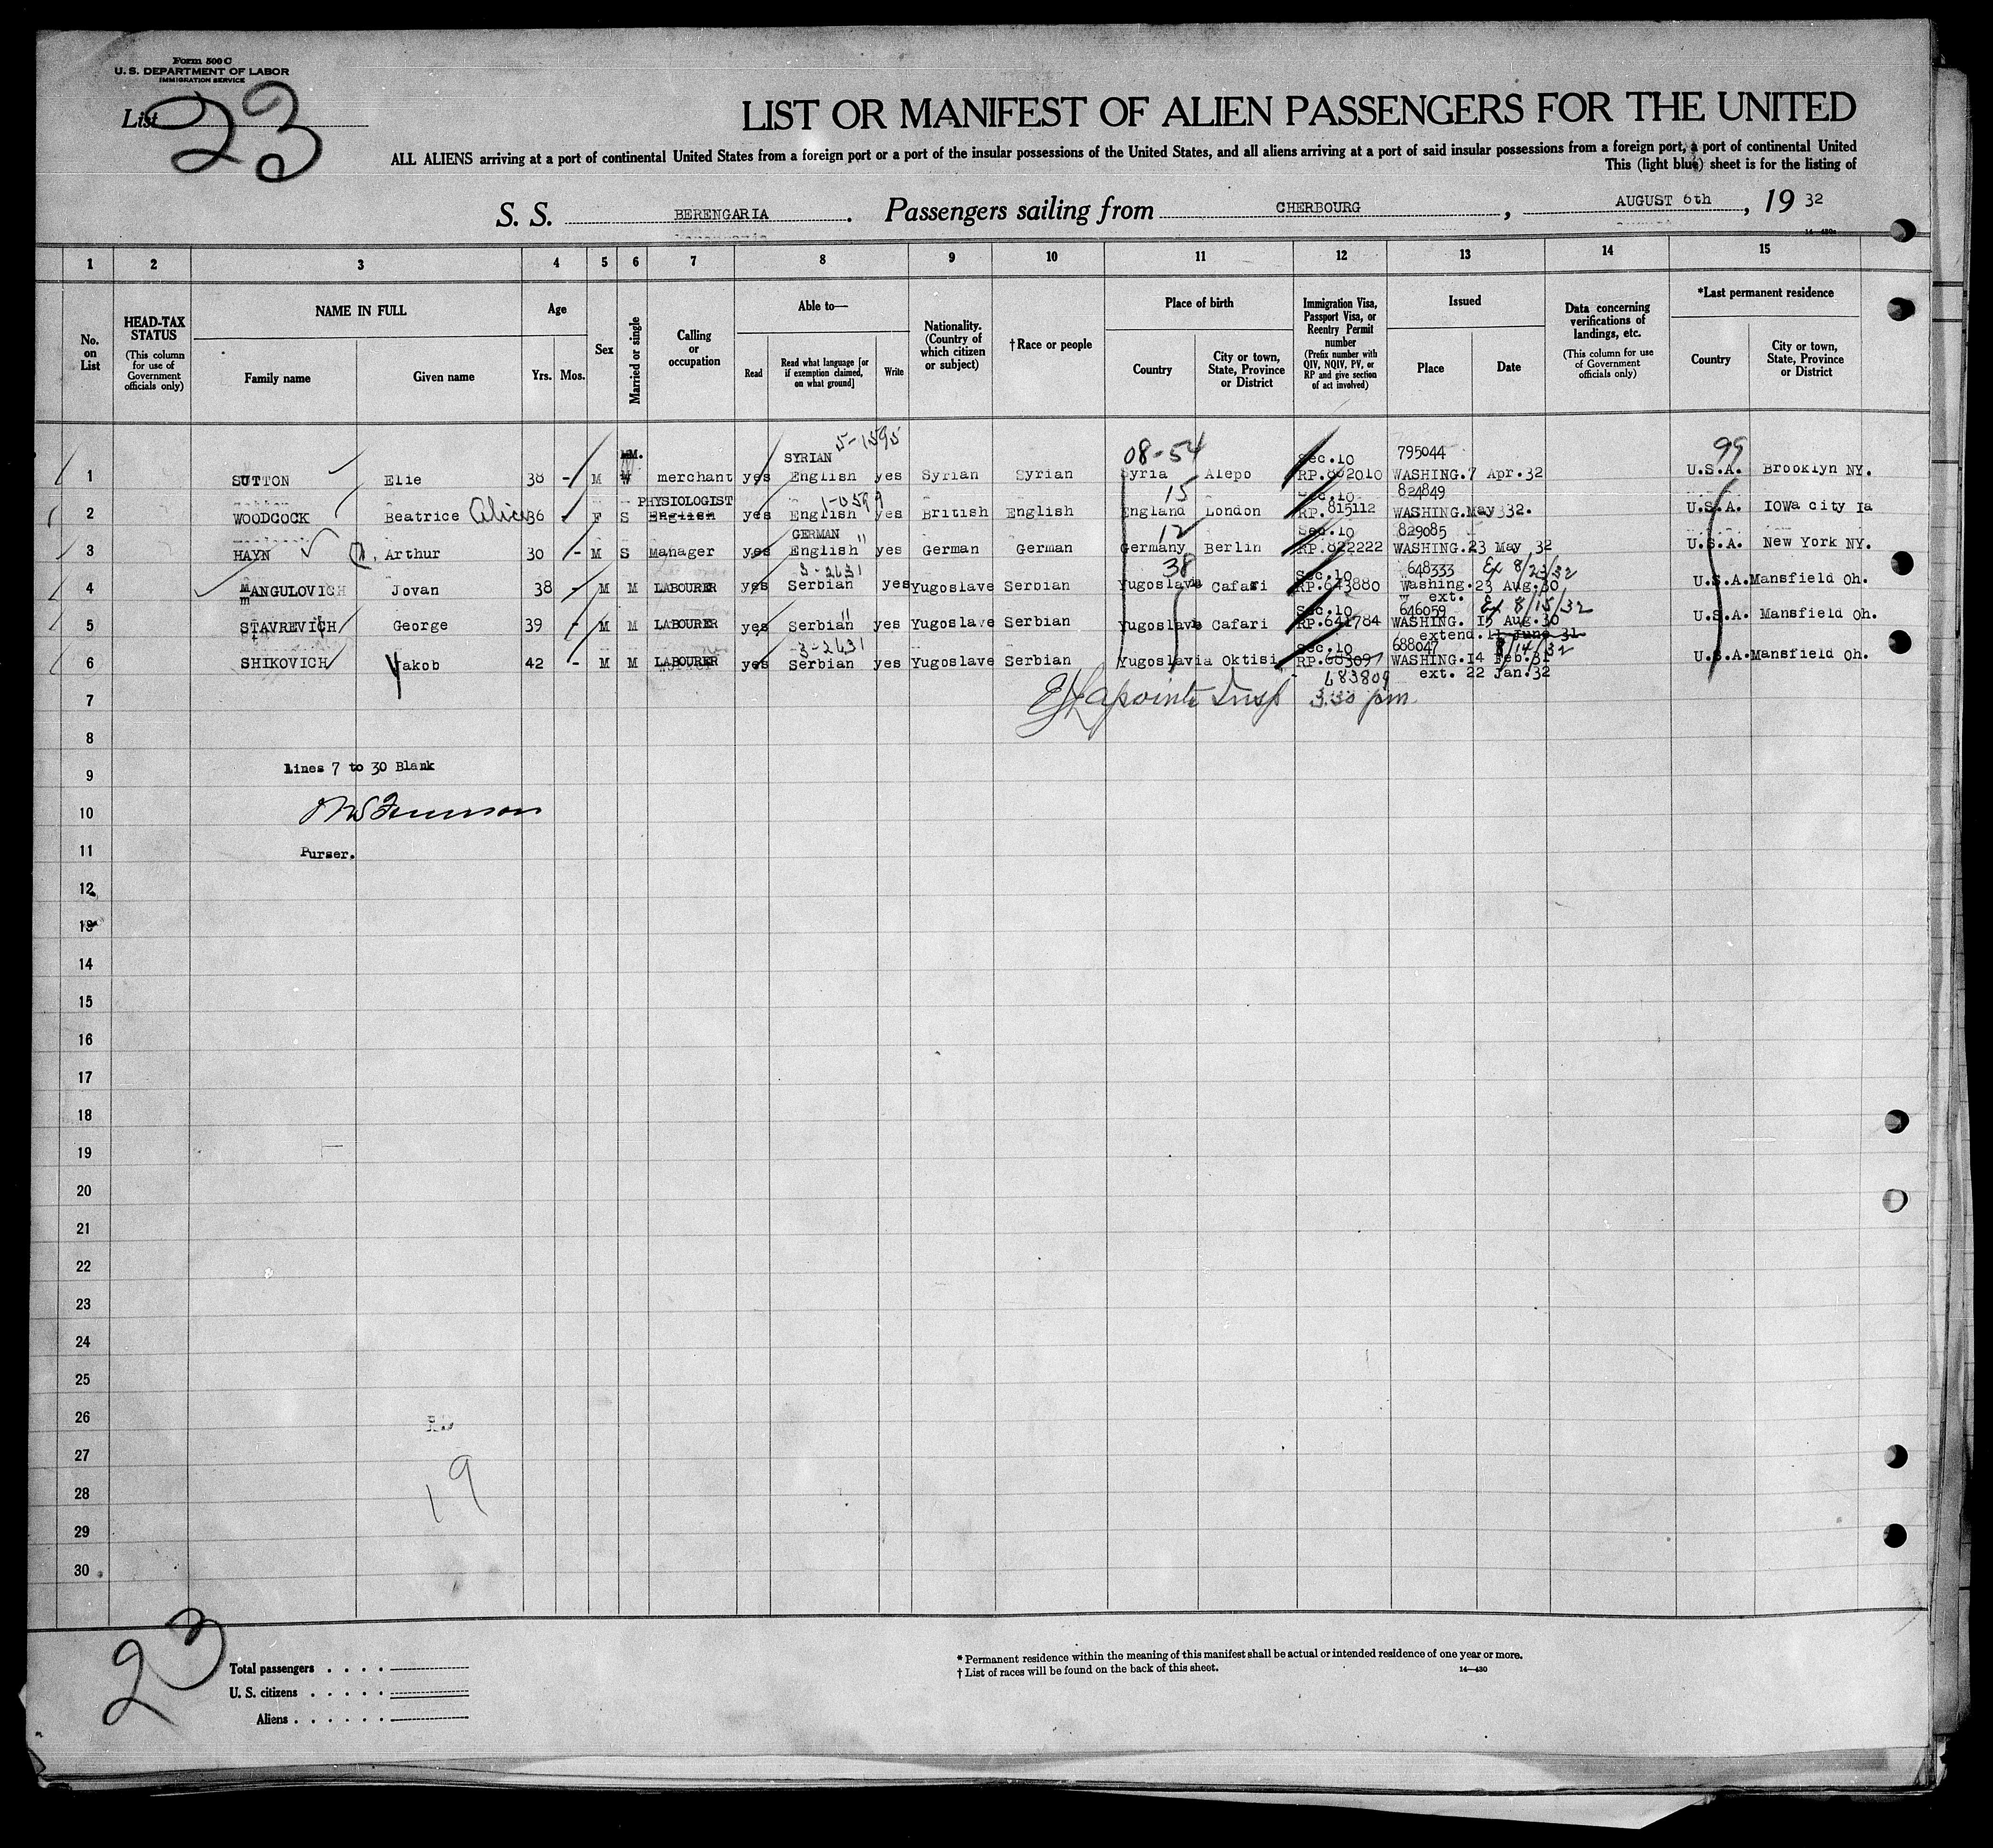 Form 500 C
U. S. DEPARTMENT OF LABOR
IMMIGRATION SERVICE
List 23
LIST OR MANIFEST OF ALIEN PASSENGERS FOR THE UNITED
ALL ALIENS arriving at a port of continental United States from a foreign port or a port of the insular possessions of the United States, and all aliens arriving at a port of said insular possessions from a foreign port, a port of continental United
This (light blue) sheet is for the listing of
S. S. BERENGARIA. Passengers sailing from CHERBOURG, AUGUST 6th, 19 32
1 2 3 4 5 6 7 8 9 10 11 12 13 14 15
No. on List
HEAD-TAX STATUS (This column for use of Government officials only)
NAME IN FULL
Family name
Given name
Age
Yrs. Mos.
Sex
Married or single
Calling or occupation
Able to—
Read
Read what language [or if exemption claimed, on what ground]
Write
Nationality. (Country of which citizen or subject)
†Race or people
Place of birth
Country
City or town, State, Province or District
Immigration Visa, Passport Visa, or Reentry Permit number (Prefix number with QIV, NQIV, PV, or RP and give section of act involved)
Issued
Place
Date
Data concerning verifications of landings, etc. (This column for use of Government officials only)
*Last permanent residence
Country
City or town, State, Province or District
MM. SYRIAN 5-1595 08-54 Sec.10 795044 99
1 SUTTON Elie 38 - M merchant yes English yes Syrian Syrian Syria Alepo RP.802010 WASHING.7 Apr.32 U.S.A. Brooklyn NY.
PHYSIOLOGIST 1-0599 15 Sec.10 824849
2 WOODCOCK Beatrice Alice 36 F S English yes English yes British English England London RP.815112 WASHING.May 332. U.S.A. IOwa city Ia
GERMAN 12 Sec.10 829085
3 HAYN Arthur 30 - M S Manager yes English " yes German German Germany Berlin RP.822222 WASHING.23 May 32 U.S.A. New York NY.
3-2631 38 Sec.10 648333 Ex 8/23/32
4 MANGULOVICH Jovan 38 - M M LABOURER yes Serbian yes Yugoslave Serbian Yugoslavia Cafari RP.643880 Washing.23 Aug.30 U.S.A. Mansfield Oh.
ext.
Sec.10 646059 Ex 8/15/32
5 STAVREVICH George 39 - M M LABOURER yes Serbian " yes Yugoslave Serbian Yugoslavia Cafari RP.641784 WASHING. 15 Aug.30 U.S.A. Mansfield Oh.
extend.11 June 31
3-2631 Sec.10 688047 8/14/32
6 SHIKOVICH Yakob 42 - M M LABOURER yes Serbian yes Yugoslave Serbian Yugoslavia Oktisi RP.68309 WASHING.14 Feb.31 U.S.A. Mansfield Oh.
683809 ext. 22 Jan.32
7 Lapointe Insp 3.30 pm
8
9 Lines 7 to 30 Blank
10
11 Purser.
12
13
14
15
16
17
18
19
20
21
22
23
24
25
26
27
28 19
29
30
23
Total passengers
U. S. citizens
Aliens
* Permanent residence within the meaning of this manifest shall be actual or intended residence of one year or more.
† List of races will be found on the back of this sheet.
14—430